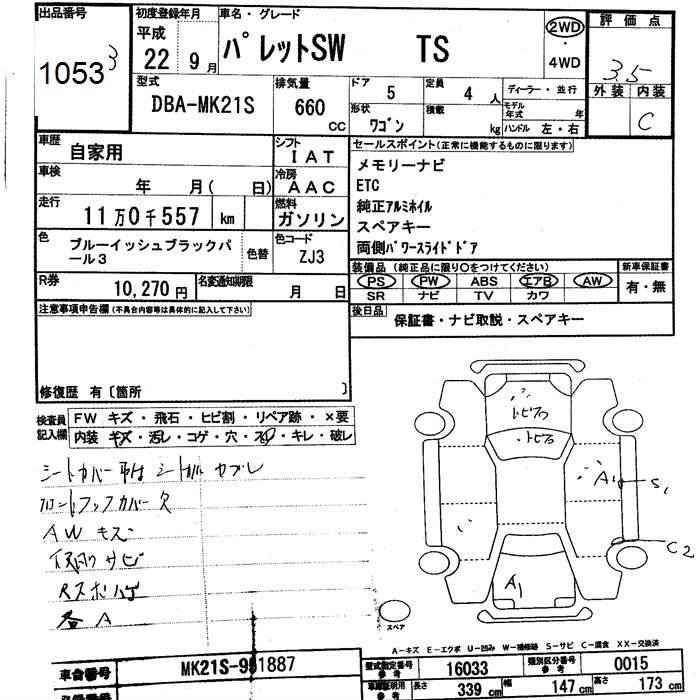 出品番号
1053
3
初度登録年月
平成
22 年 9 月
車名・グレード
パレットSW TS
2WD
・
4WD
評価点
3.5
外装 内装
C
型式
DBA-MK21S
排気量
660
CC
ドア
5
定員
4 人
形状
ワゴン
積載
kg
ディーラー・並行
モデル
年式
年
ハンドル 左・右
車歴
自家用
シフト
IAT
車検
年 月( 日)
冷房
AAC
走行
11万0千557 km
燃料
ガソリン
色
ブルーイッシュブラックパ
ール3
色替
色コード
ZJ3
R券
10,270 円
名変通知期限
月 日
セールスポイント(正常に機能するものに限ります)
メモリーナビ
ETC
純正アルミホイル
スペアキー
両側パワースライドドア
装備品 (純正品に限り○をつけてください)
PS PW ABS エアB AW
SR ナビ TV カワ
新車保証書
有・無
後日品
保証書・ナビ取説・スペアキー
注意事項申告欄(不具合内容等は具体的に記入して下さい)
修復歴 有〔箇所 〕
検査員
記入欄
FW キズ・飛石・ヒビ割・リペア跡・×要
内装 キズ・汚レ・コゲ・穴・スレ・キレ・破レ
フロントフックカバー欠
AW キズ
下回リ サビ
各 A
トビフ
・トビフ
A1
S1
C2
A1
スペア
A-キズ E-エクボ U-凹み W-補修跡 S-サビ C-腐食 XX-交換済
車台番号
MK21S-981887
型式指定番号
参考
16033
類別区分番号
参考
0015
車庫証明用
参考
長さ
339 cm
幅
147 cm
高さ
173 cm